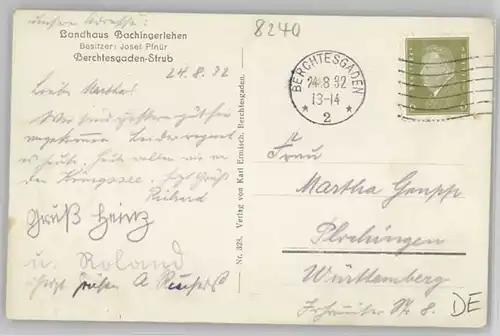 unsere Adresse:
Landhaus Bachingerlehen
Besitzer: Josef Pfnür
Berchtesgaden-Strub
24.8.32
Liebe Martha!
Wir sind gestern gut hier
angekommen. Leider regnet
es heute. Heute wollen wir an
den Königssee. Herzl. Grüße
Richard
Gruß Heinz
u. Roland
herzl.
Nr. 328. Verlag von Karl Ermisch, Berchtesgaden.
8240
BERCHTESGADEN
24.8.32
13-14
* 2 *
Frau
Martha
Plochingen
Württemberg
8.
DE